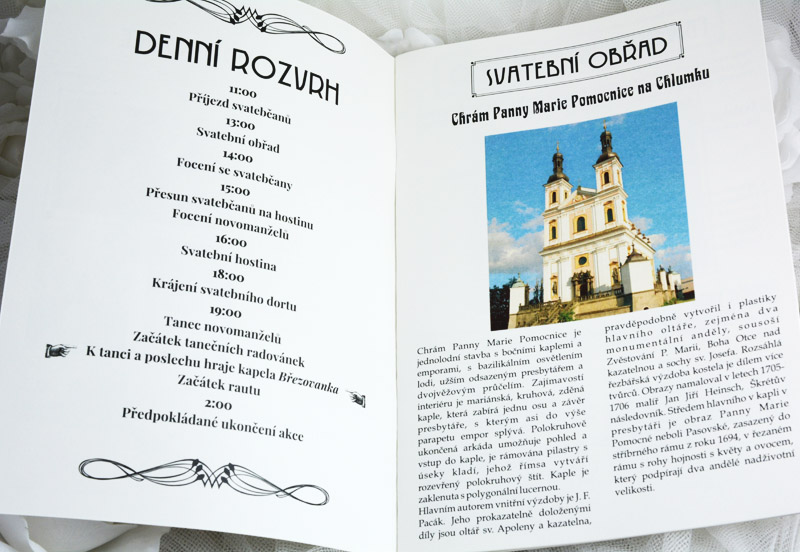 DENNÍ ROZVRH
11:00
Příjezd svatebčanů
13:00
Svatební obřad
14:00
Focení se svatebčany
15:00
Přesun svatebčanů na hostinu
Focení novomanželů
16:00
Svatební hostina
18:00
Krájení svatebního dortu
19:00
Tanec novomanželů
Začátek tanečních radovánek
K tanci a poslechu hraje kapela Březovanka
Začátek rautu
2:00
Předpokládané ukončení akce
SVATEBNÍ OBŘAD
Chrám Panny Marie Pomocnice na Chlumku
Chrám Panny Marie Pomocnice je
jednolodní stavba s bočními kaplemi a
emporami, s bazilikálním osvětlením
lodi, užším odsazeným presbytářem a
dvojvěžovým průčelím. Zajímavostí
interiéru je mariánská, kruhová, zděná
kaple, která zabírá jednu osu a závěr
presbytáře, s kterým asi do výše
parapetu empor splývá. Polokruhově
ukončená arkáda umožňuje pohled a
vstup do kaple, je rámována pilastry s
úseky kladí, jehož římsa vytváří
rozevřený polokruhový štít. Kaple je
zaklenuta s polygonální lucernou.
Hlavním autorem vnitřní výzdoby je J. F.
Pacák. Jeho prokazatelně doloženými
díly jsou oltář sv. Apoleny a kazatelna,
pravděpodobně vytvořil i plastiky
hlavního oltáře, zejména dva
monumentální anděly, sousoší
Zvěstování P. Marii, Boha Otce nad
kazatelnou a sochy sv. Josefa. Rozsáhlá
řezbářská výzdoba kostela je dílem více
tvůrců. Obrazy namaloval v letech 1705-
1706 malíř Jan Jiří Heinsch, Škrétův
následovník. Středem hlavního v kapli v
presbytáři je obraz Panny Marie
Pomocné neboli Pasovské, zasazený do
stříbrného rámu z roku 1694, v řezaném
rámu s rohy hojnosti s květy a ovocem,
který podpírají dva andělé nadživotní
velikosti.